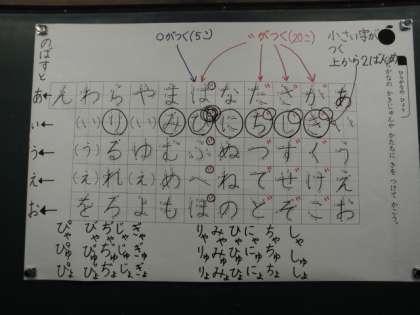 〇がつく(5こ)
゛がつく(20こ)
小さい字が
つく
上から2ばんめ
ひらがなの ひょう
かなの かきじゅんや かたちに きを つけて かこう。
のばすと
あ← ん わ ら や ま ば な だ ざ が あ
い← (い) り (い) み び に ぢ じ ぎ い
う← (う) る ゆ む ぶ ぬ づ ず ぐ う
え← (え) れ (え) め べ ね で ぜ げ え
お← を ろ よ も ぼ の ど ぞ ご お
ぴゃ びゃ ぢゃ じゃ ぎゃ りゃ みゃ ひゃ にゃ ちゃ しゃ
ぴゅ びゅ ぢゅ じゅ ぎゅ りゅ みゅ ひゅ にゅ ちゅ しゅ
ぴょ びょ ぢょ じょ ぎょ りょ みょ ひょ にょ ちょ しょ